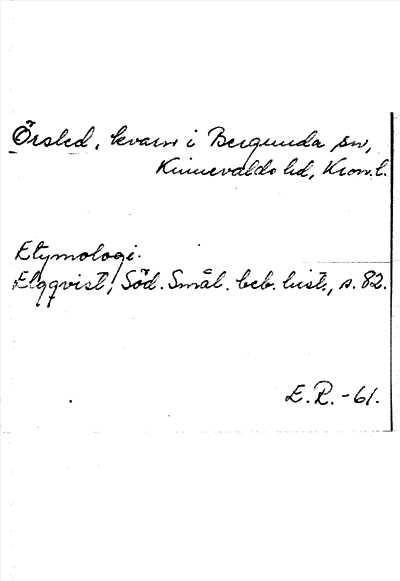 Örsled, kvarn i Bergunda sn,
Kinnevalds hd, Kron. l.
Etymologi.
Elgqvist, Söd. Smål. beb. hist., s. 82.
E. R. -61.